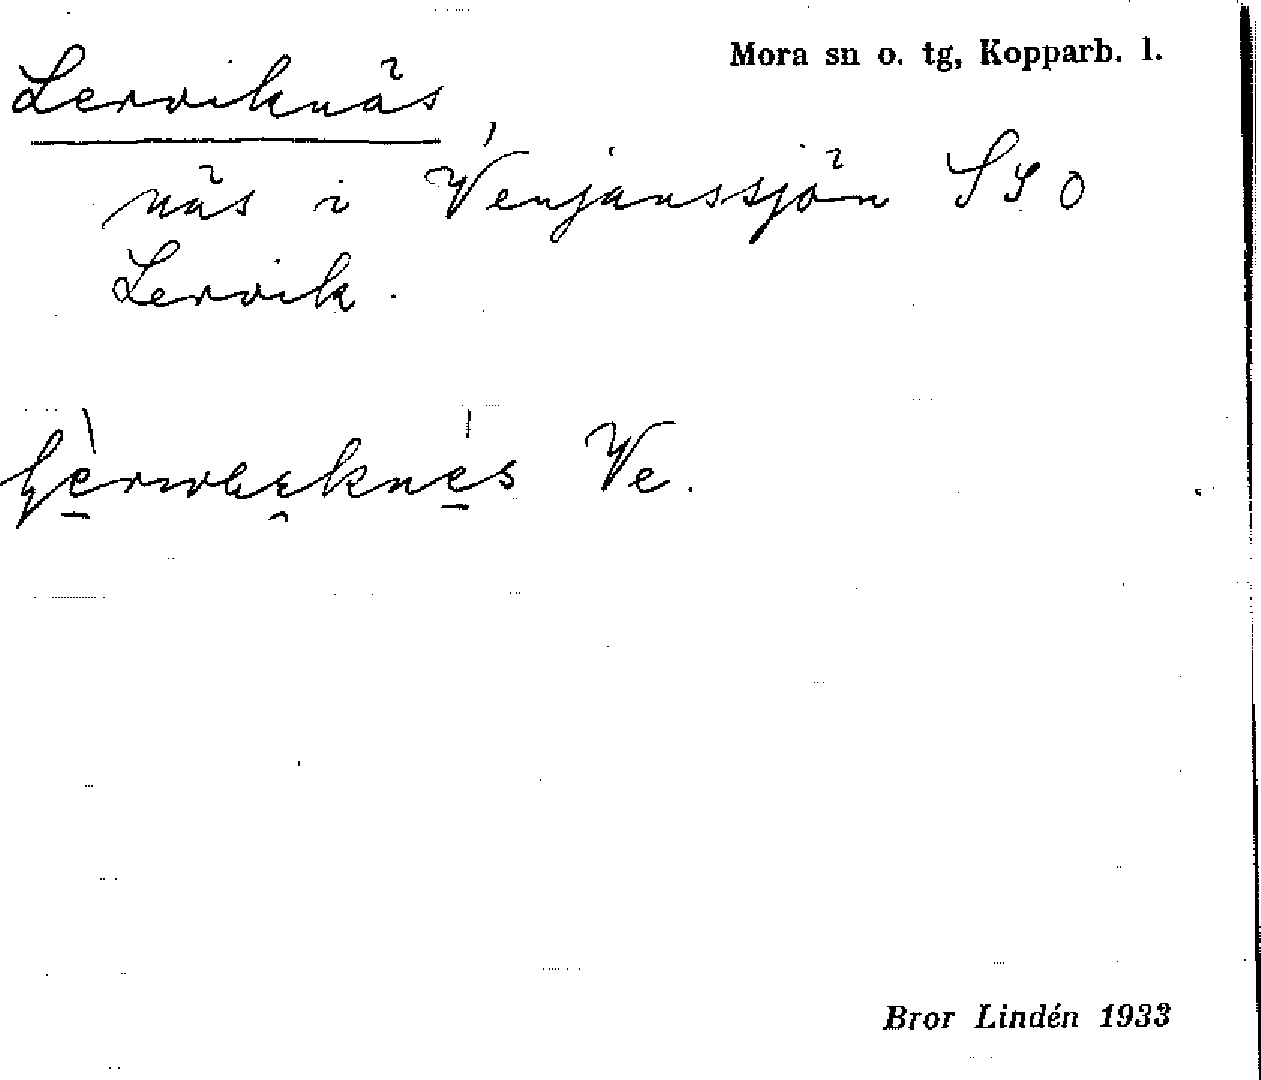 Mora sn o. tg, Kopparb. l.
Lerviknäs
näs i Venjanssjön SSO
Lervik.
Ve.
Bror Lindén 1933